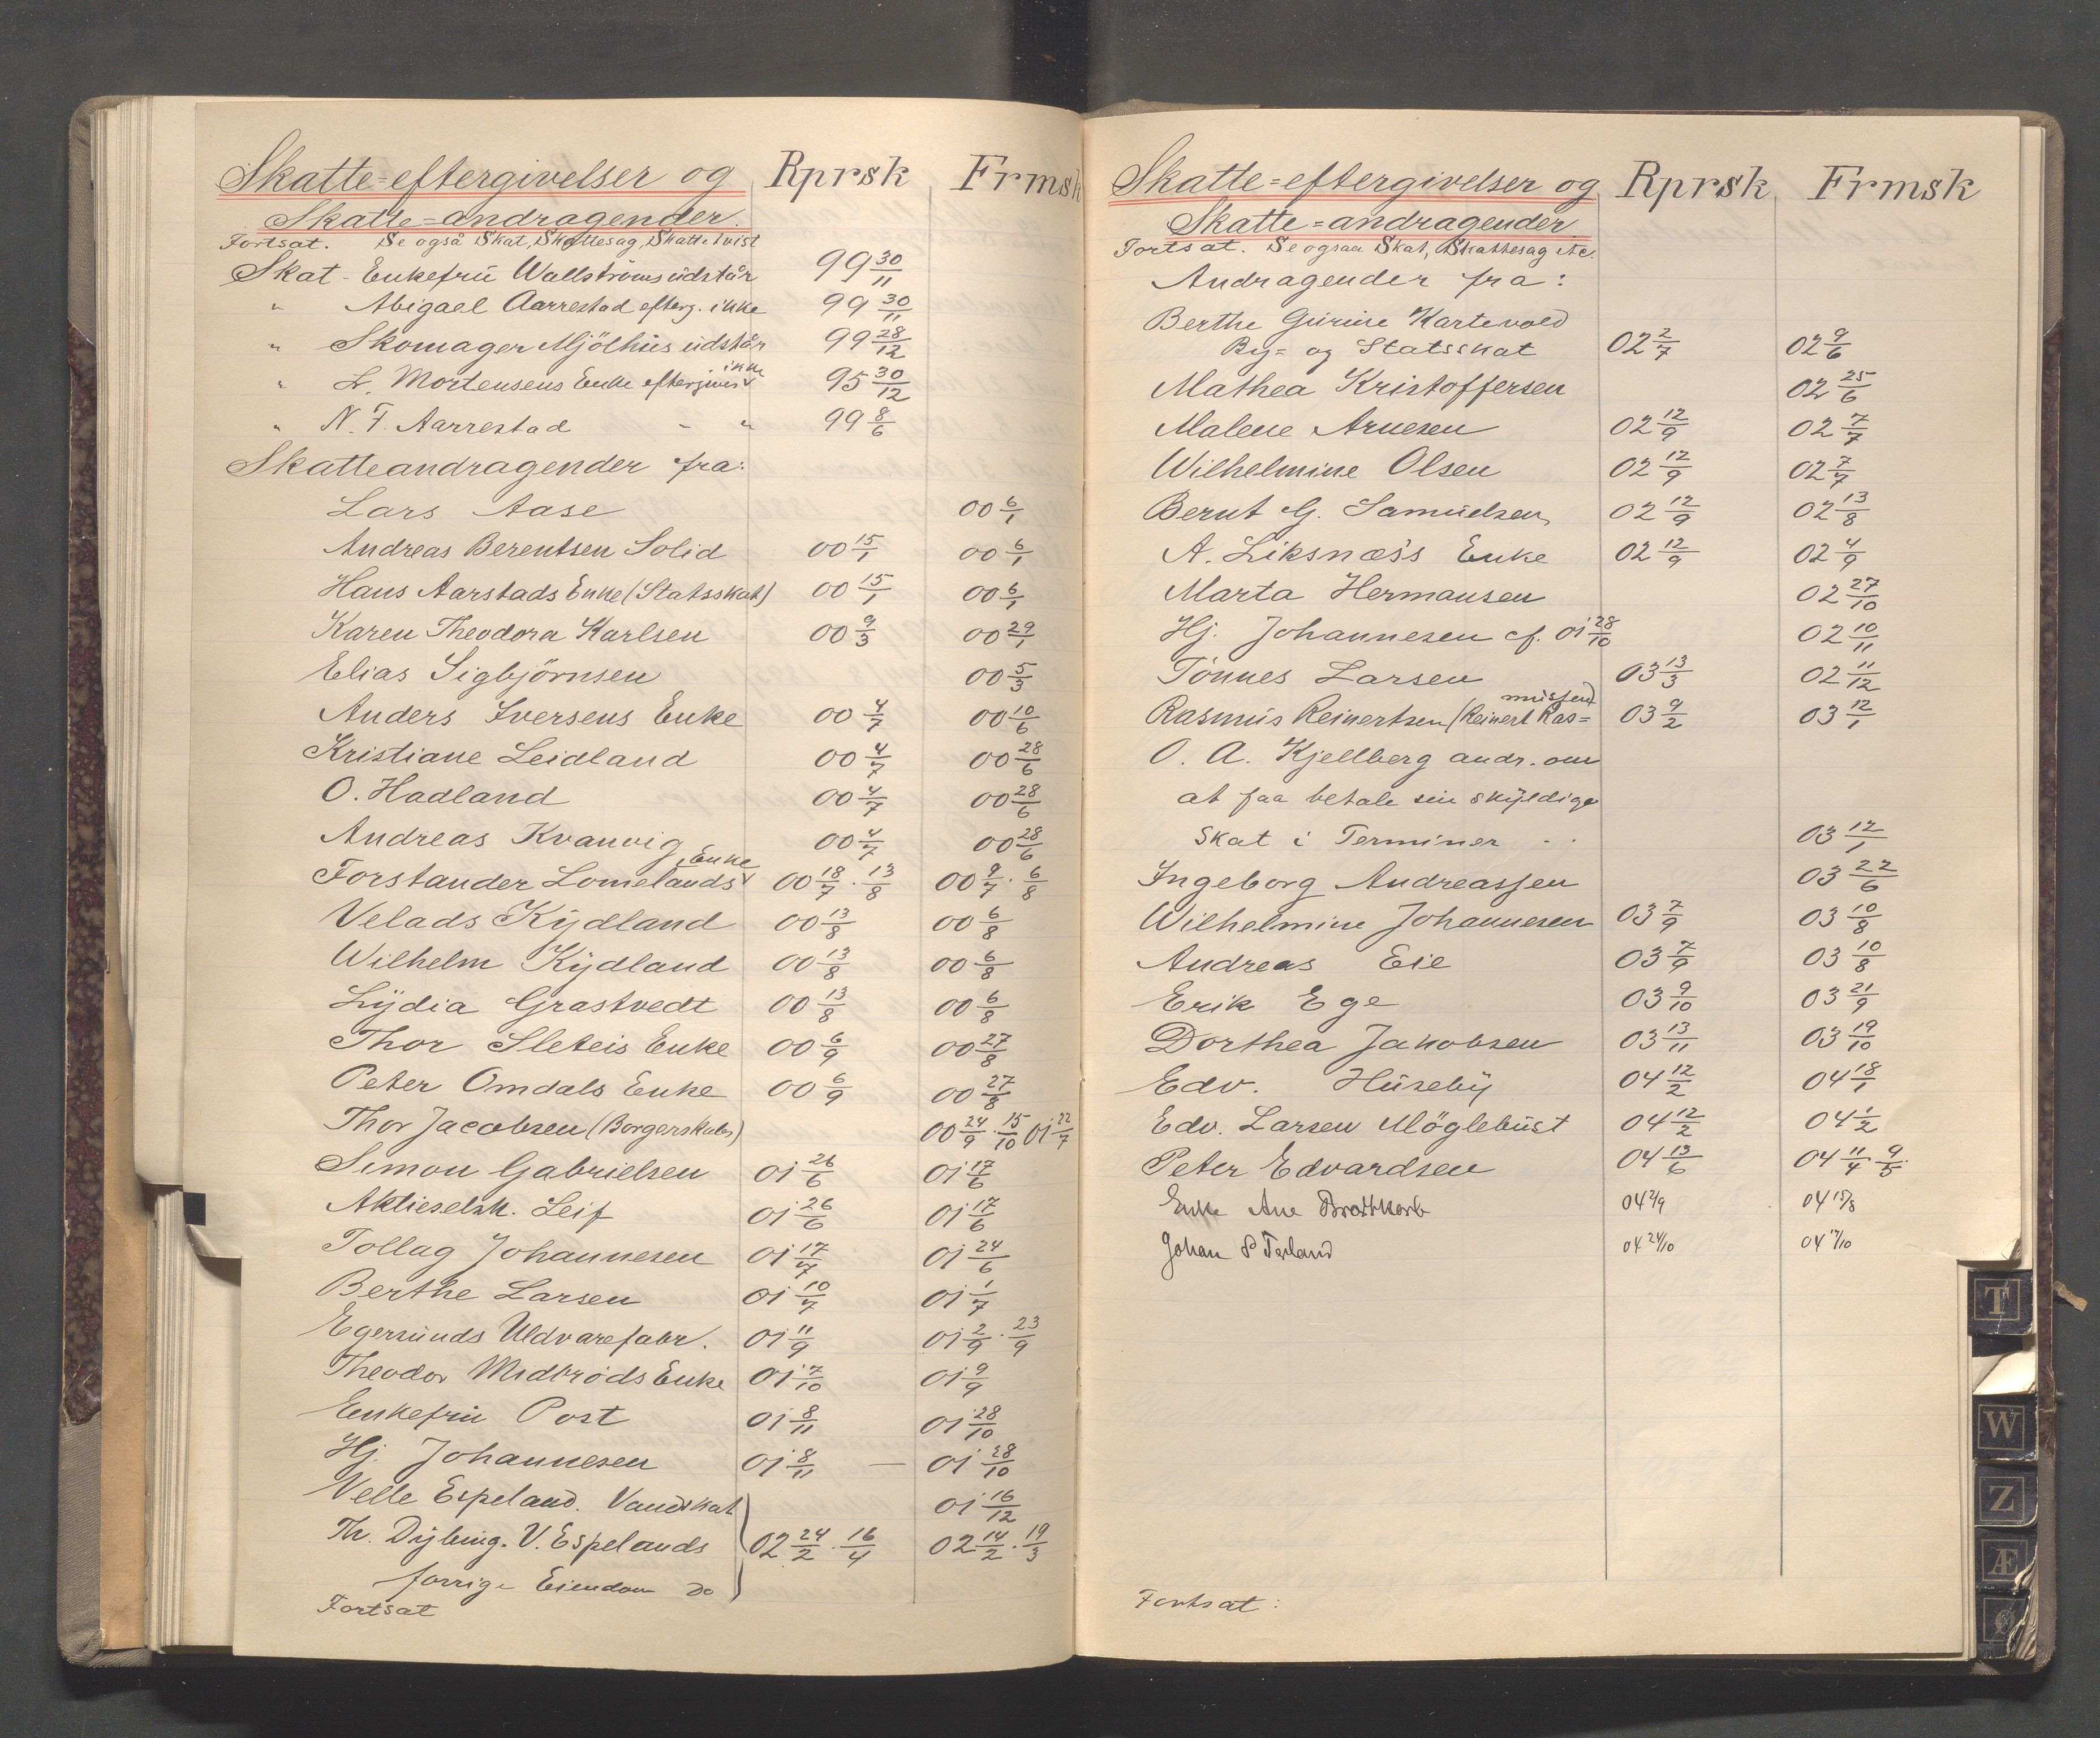 Skatte=eftergivelser og Rprsk Frmsk
Skatte=andragender.
Fortsat. Se også Skat, Skattesag, Skattetvist
Skat - Enkefrü Wallströms üdstår 99 30/11
" Abigael Aarrestad efterg. ikke 99 30/11
" Skomager Mjölhüs üdstår 99 28/12
" L. Mortensens Enke eftergives ikke 95 30/12
" N. F. Aarrestad " " 99 8/6
Skatteandragender fra:
Lars Aase 00 6/1
Andreas Berentsen Solid 00 15/1 00 6/1
Hans Aarstads Enke (Statsskat) 00 15/1 00 6/1
Karen Theodora Karlsen 00 9/3 00 29/1
Elias Sigbjörnsen 00 5/3
Anders Iversens Enke 00 4/7 00 10/6
Kristiane Leidland 00 4/7 00 28/6
O. Hadland 00 4/7 00 28/6
Andreas Kvanvig 00 4/7 00 28/6
Forstander Lomelands Enke 00 18/7 · 13/8 00 9/7 · 6/8
Velads Kydland 00 13/8 00 6/8
Wilhelm Kydland 00 13/8 00 6/8
Lydia Grastvedt 00 13/8 00 6/8
Thor Sleteis Enke 00 6/9 00 27/8
Peter Omdals Enke 00 6/9 00 27/8
Thor Jacobsen (Borgerskules) 00 24/9 · 15/10 01 22/7
Simon Gabrielsen 01 26/6 01 17/6
Aktieselsk. Leif 01 26/6 01 17/6
Tollag Johannesen 01 17/7 01 24/6
Berthe Larsen 01 10/7 01 1/7
Egersünds Uldvarefabr. 01 11/9 01 2/9 · 23/9
Theodor Midbrøds Enke 01 7/10 01 9/9
Enkefrü Post 01 8/11 01 28/10
Hj. Johannesen 01 8/11 — 01 28/10
Velle Espeland. Vandskat 01 16/12
Th. Dybing. V. Espelands 02 24/2 · 16/4 02 14/2 · 19/3
forrige Eiendom do
Fortsat
Skatte=eftergivelser og Rprsk Frmsk
Skatte=andragender
Fortsat. Se ogsaa Skat, Skattesag etc.
Andragender fra:
Berthe Gürine Kartevold
By= og Statsskat 02 2/7 02 9/6
Mathea Kristoffersen 02 25/6
Malene Arnesen 02 12/9 02 7/7
Wilhelmine Olsen 02 12/9 02 7/7
Bernt G. Samüelsen 02 12/9 02 13/8
A. Liksnæs's Enke 02 12/9 02 4/9
Marta Hermansen 02 27/10
Hj. Johannesen cf. 01 28/10 02 10/11
Tönnes Larsen 03 13/3 02 11/12
Rasmüs Reinertsen (Reinert Ras=müssen) 03 9/2 03 12/1
O. A. Kjellberg andr. om
at faa betale sin skyldige
Skat i Terminer . . 03 12/1
Ingeborg Andreassen 03 22/6
Wilhelmine Johannesen 03 7/9 03 10/8
Andreas Eie 03 7/9 03 10/8
Erik Ege 03 9/10 03 21/9
Dorthea Jakobsen 03 13/11 03 19/10
Edv. Hüseby 04 12/2 04 18/1
Edv. Larsen Möglebüst 04 12/2 04 1/2
Peter Edvardsen 04 13/6 04 11/4 · 9/5
Enke Ane Brottkorb 04 2/9 04 15/8
Johan S Terland 04 24/10 04 17/10
Fortsat:
T
W
Z
Æ
Ø